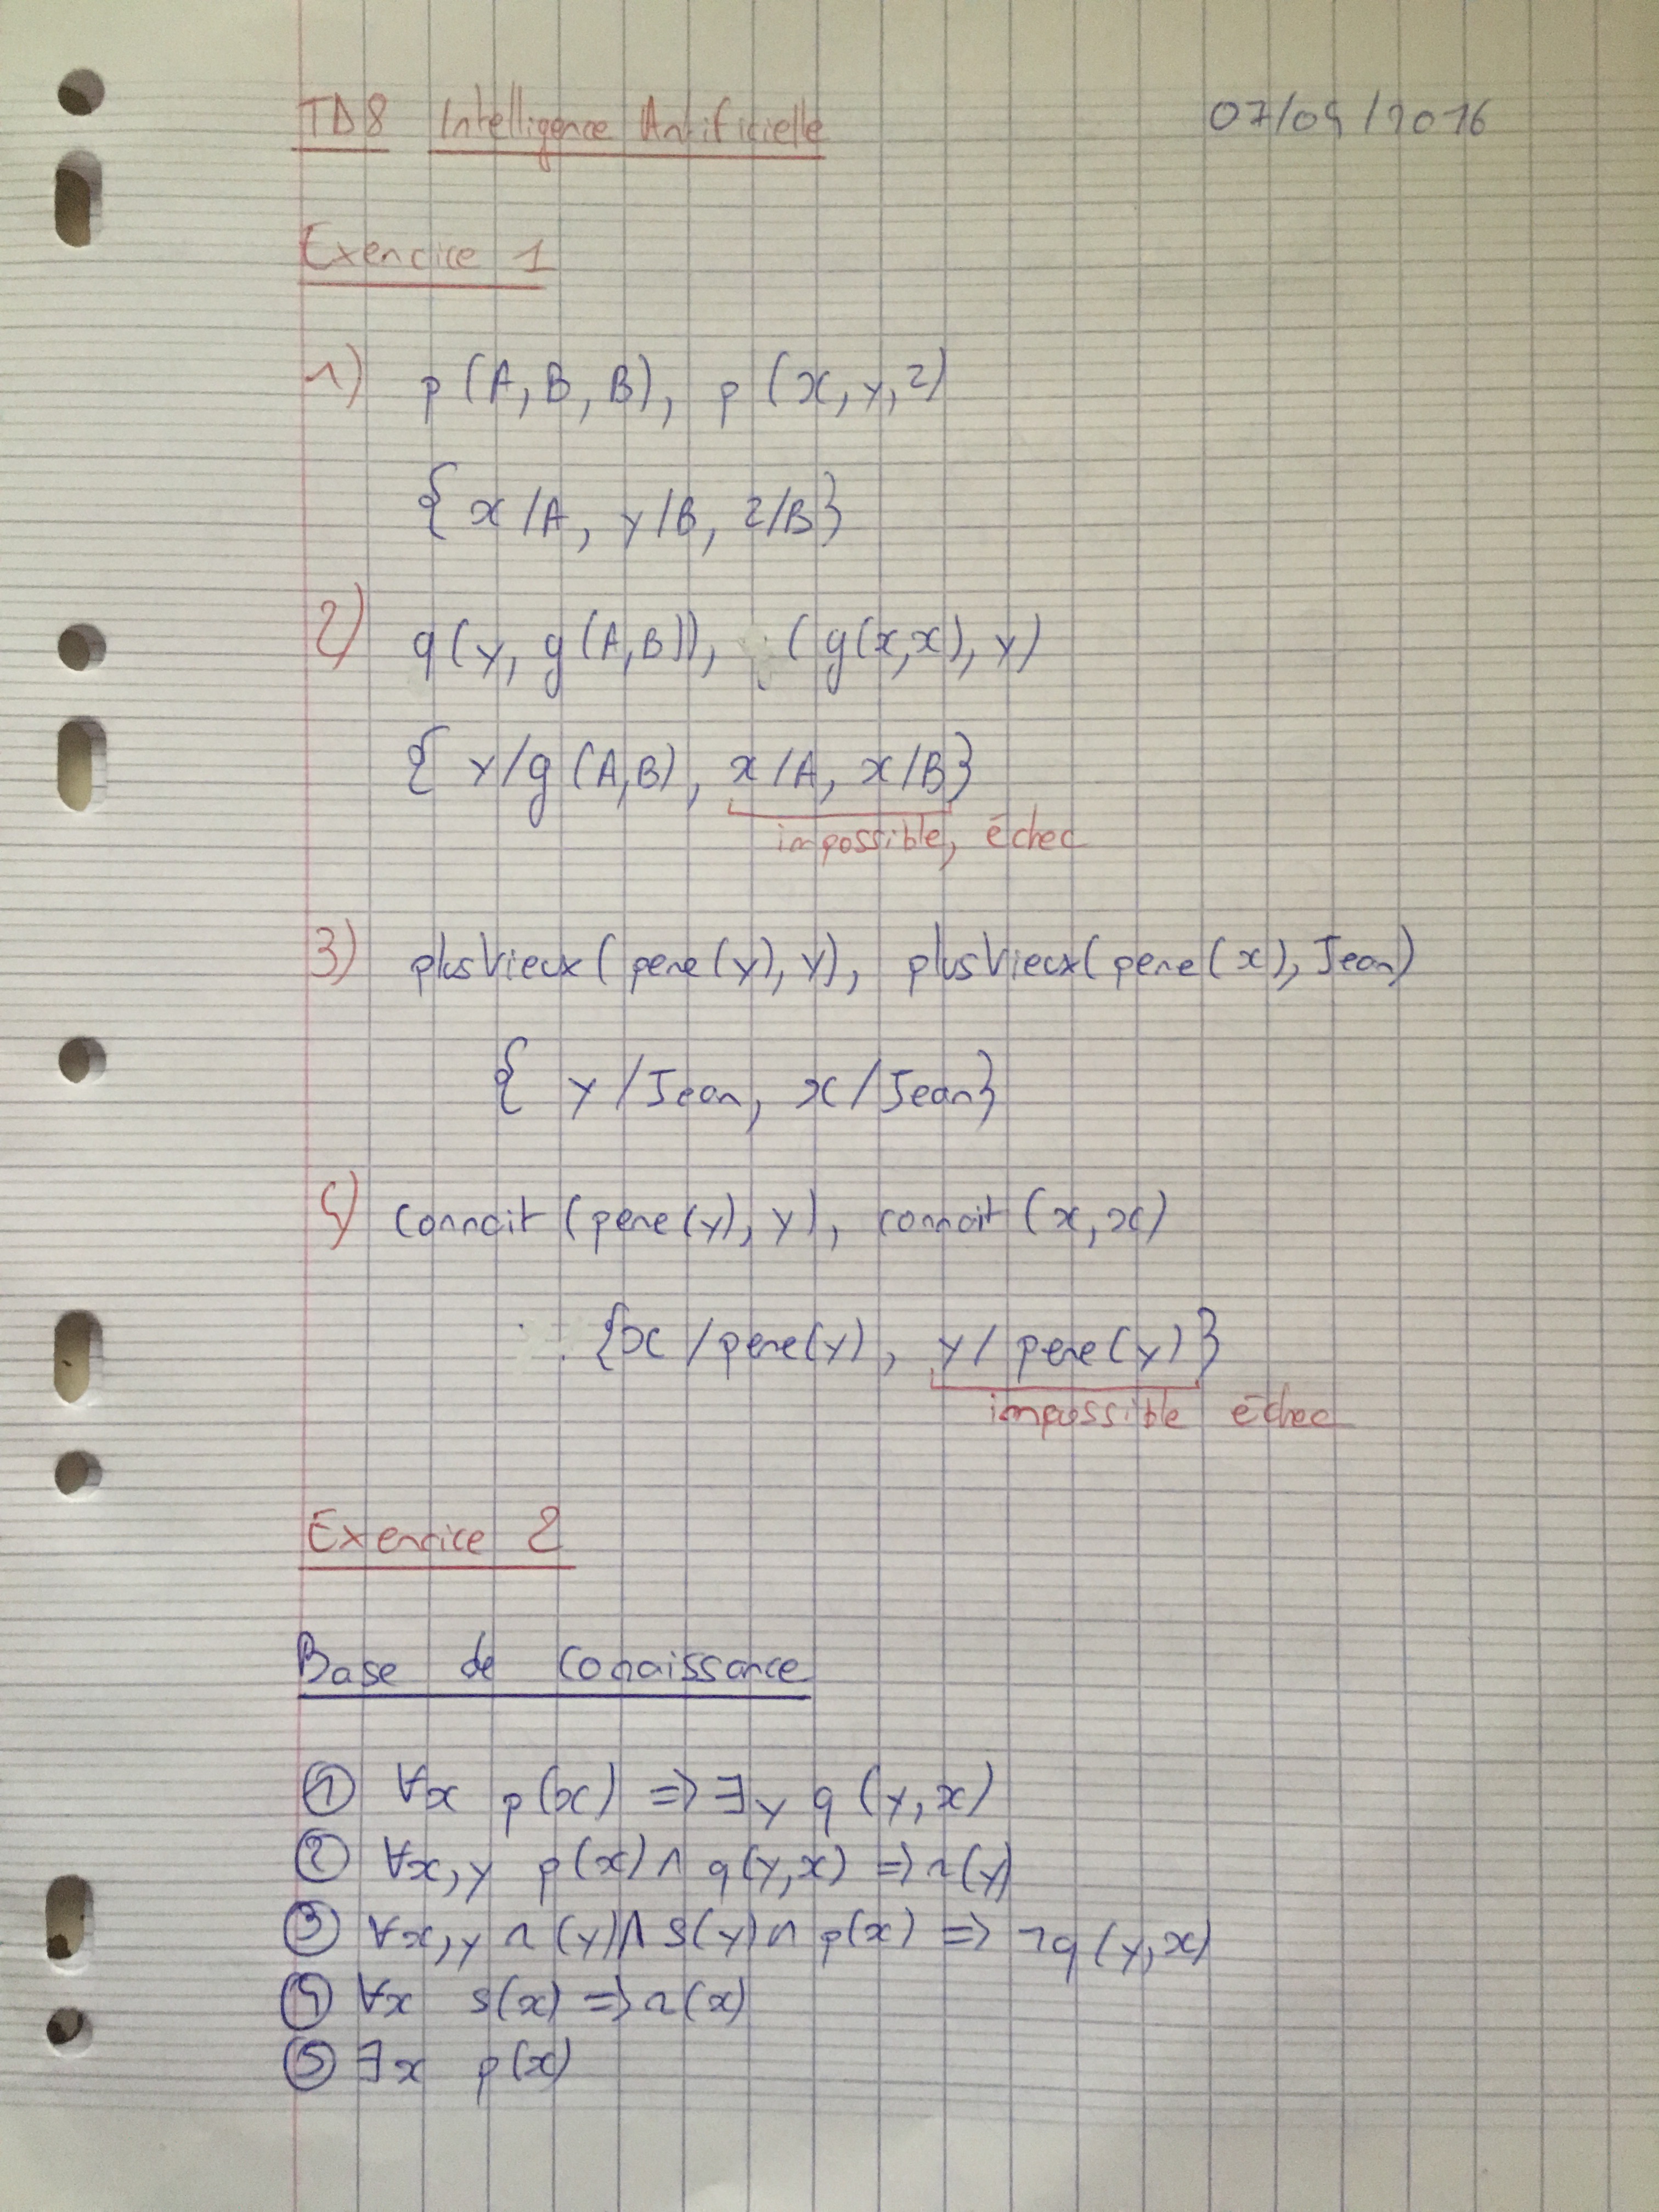 TD8 Intelligence Artificielle 07/04/2016
Exercice 1
1) p(A, B, B), p(x, y, z)
{x/A, y/B, z/B}
2) q(y, g(A,B)), (g(x,x), y)
{y/g(A,B), x/A, x/B}
impossible, échec
3) plusVieux(pere(y), y), plusVieux(pere(x), Jean)
{y/Jean, x/Jean}
4) connait(pere(y), y), connait(x, x)
{x/pere(y), y/pere(y)}
impossible échec
Exercice 2
Base de conaissance
① ∀x p(x) => ∃y q(y, x)
② ∀x,y p(x) ∧ q(y,x) => r(y)
③ ∀x,y r(y) ∧ s(y) ∧ p(x) => ¬q(y,x)
④ ∀x s(x) => r(x)
⑤ ∃x p(x)